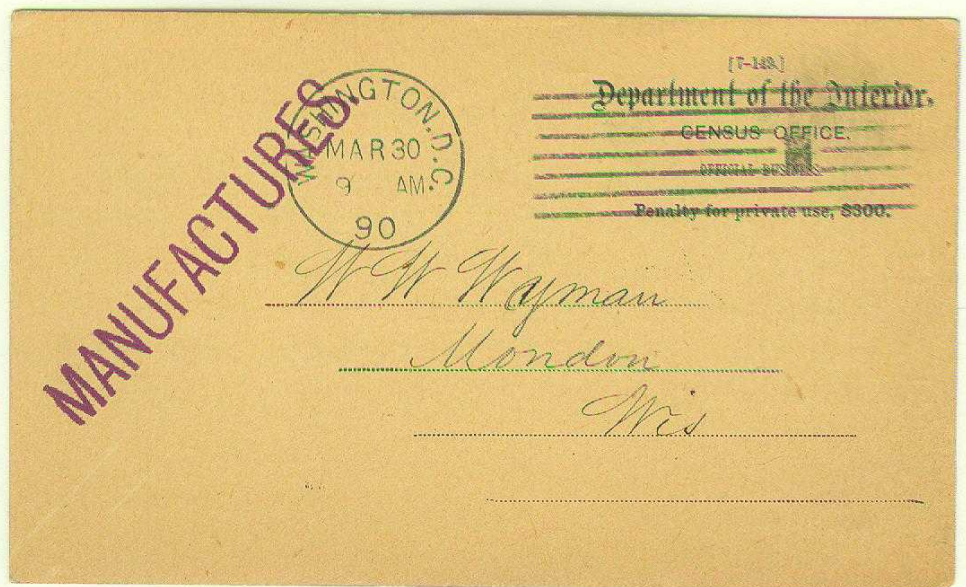 [7-149.]
Department of the Interior.
CENSUS OFFICE.
OFFICIAL BUSINESS.
Penalty for private use, $300.
WASHINGTON. D.C.
MAR 30
9 AM.
90
MANUFACTURES.
W W Wayman
Mondon
Wis